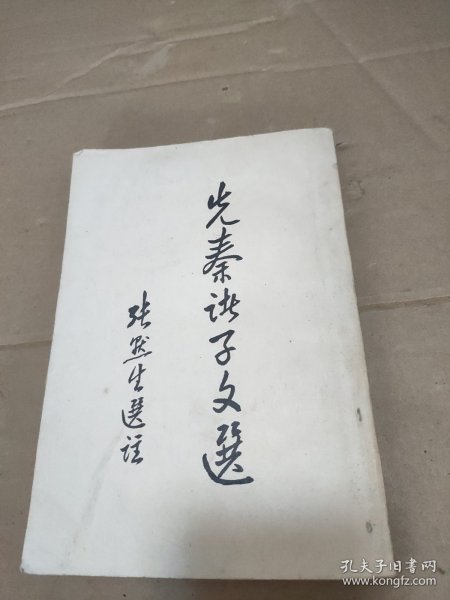 先秦诸子文選
张默生選註
孔夫子旧书网
www.kongfz.com